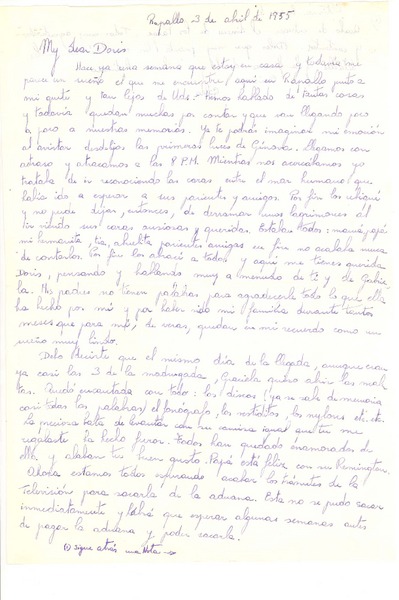 Rapallo 3 de abril de 1955
My dear Doris
Hace ya una semana que estoy en casa y todavía me
parece un sueño el que me encuentre aquí en Rapallo junto a
mi gente y tan lejos de Uds. Hemos hablado de tantas cosas
y todavía quedan muchas por contar y que van llegando poco
a poco a nuestras memorias. Ya te podrás imaginar mi emoción
al avistar desde lejos las primeras luces de Génova. Llegamos con
atraso y atracamos a las 8 P.M. Mientras nos acercábamos yo
trataba de ir reconociendo las caras entre el mar humano que
había ido a esperar a sus parientes y amigos. Por fin los ubiqué
y no pude dejar, entonces, de derramar unos lagrimones al
ir viendo sus caras ansiosas y queridas. Estaban todos: mamá, papá
mi hermanita, tía, abuelita parientes amigos en fin no acababa nunca
de contarlos. Por fin los abracé a todos y aquí me tienes querida
Doris, pensando y hablando muy a menudo de ti y de Gabrie
la. Mis padres no tienen palabras para agradecerle todo lo que ella
ha hecho por mí y por haber sido mi familia durante tantos
meses que para mí, de veras, quedan en mi recuerdo como un
sueño muy lindo.
Debo decirte que el mismo día de la llegada, aunque eran
ya casi las 3 de la madrugada, Graciela quiso abrir las male
tas. Quedó encantada con todo: los discos (ya se sabe de memoria
casi todas las palabras) el fonógrafo, los vestiditos, los nylones etc. etc.
La misma falta de encantar con su camisa igual que tú me
regalaste ha hecho furor. Todos han quedado enamorados de
ella y alaban tu buen gusto. Papá está feliz con su Remington.
Ahora estamos todos esperando acabar los trámites de la
Televisión para sacarla de la aduana. Esta no se pudo sacar
inmediatamente y habrá que esperar algunas semanas antes
de pagar la aduana y poder sacarla.
(1) sigue atrás una Nota